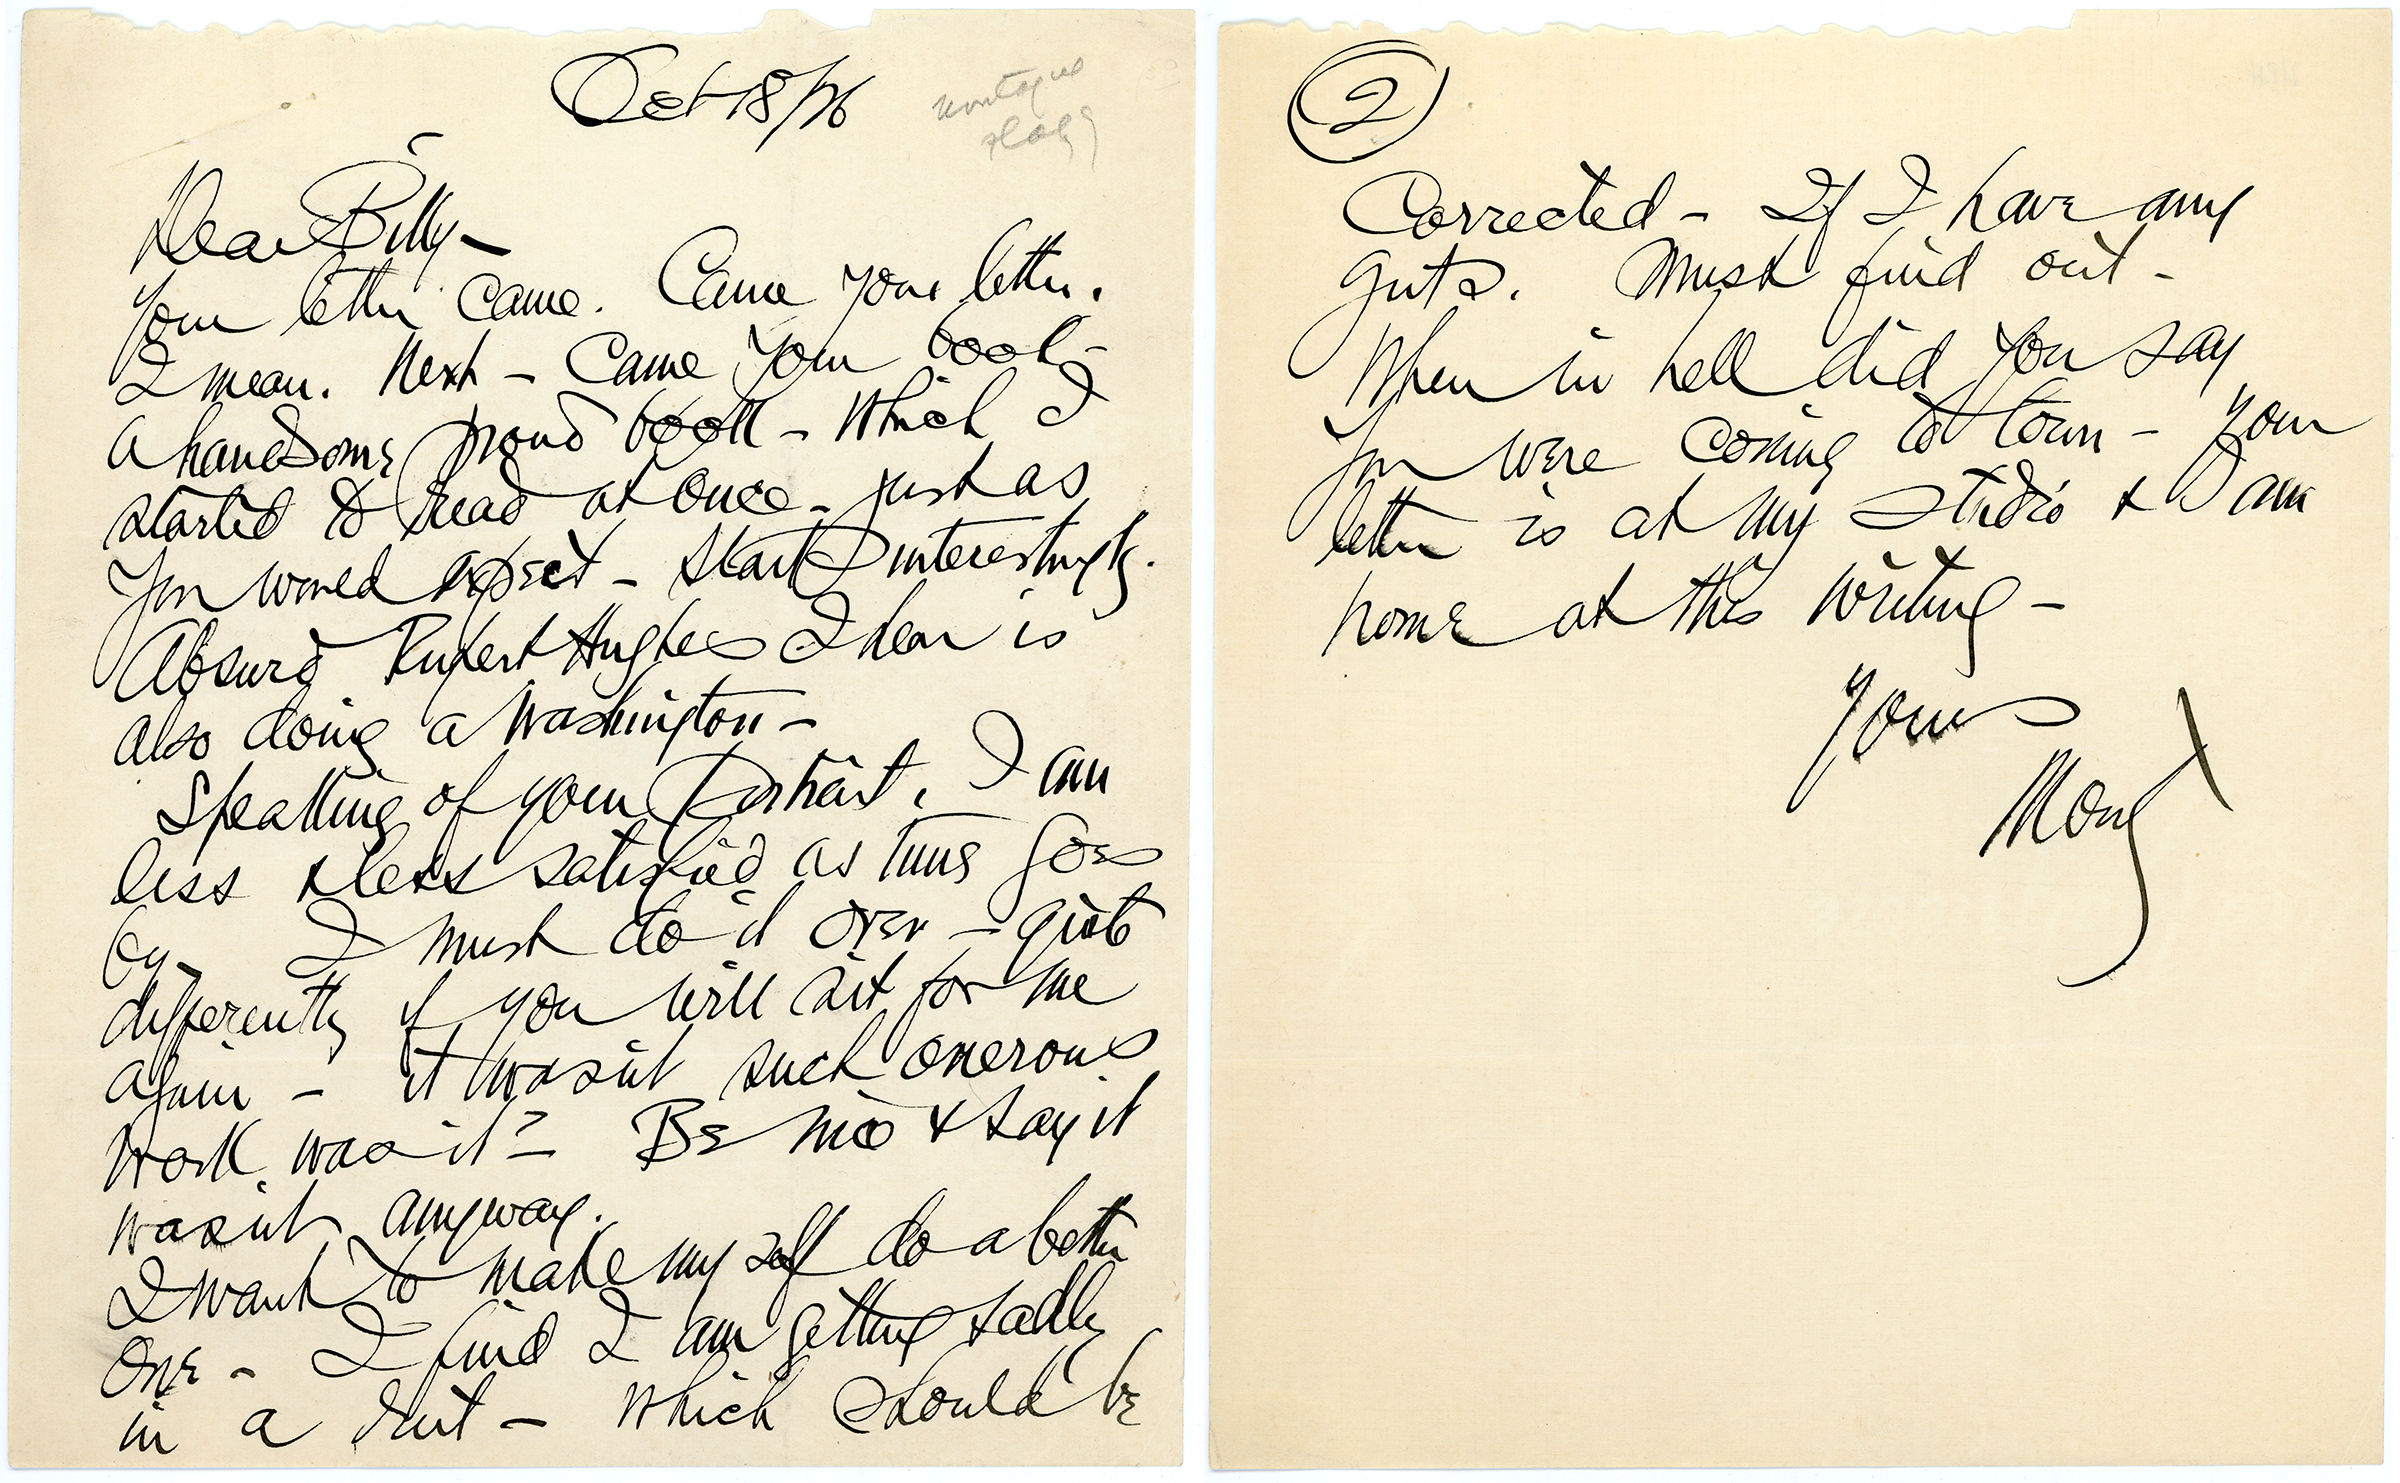 Oct 18/26
montague
Dear Billy —
Your letter came. Came your letter.
I mean. Next — Came your book —
a handsome proud book — which I
started to read at once — just as
you would expect — starts interestingly.
Absurd Rupert Hughes I hear is
also doing a Washington —
Speaking of your Portrait, I am
less & less satisfied as time goes
by. I must do it over — quite
differently if you will sit for me
again — it wasn't such onerous
work, was it? — Be nice & say it
wasn't anyway.
I want to make my self do a better
one — I find I am getting sadly
in a rut — which should be
2
Corrected — If I have any
guts. Must find out —
When in hell did you say
you were coming to town — your
letter is at my studio & I am
home at this writing —
Yours